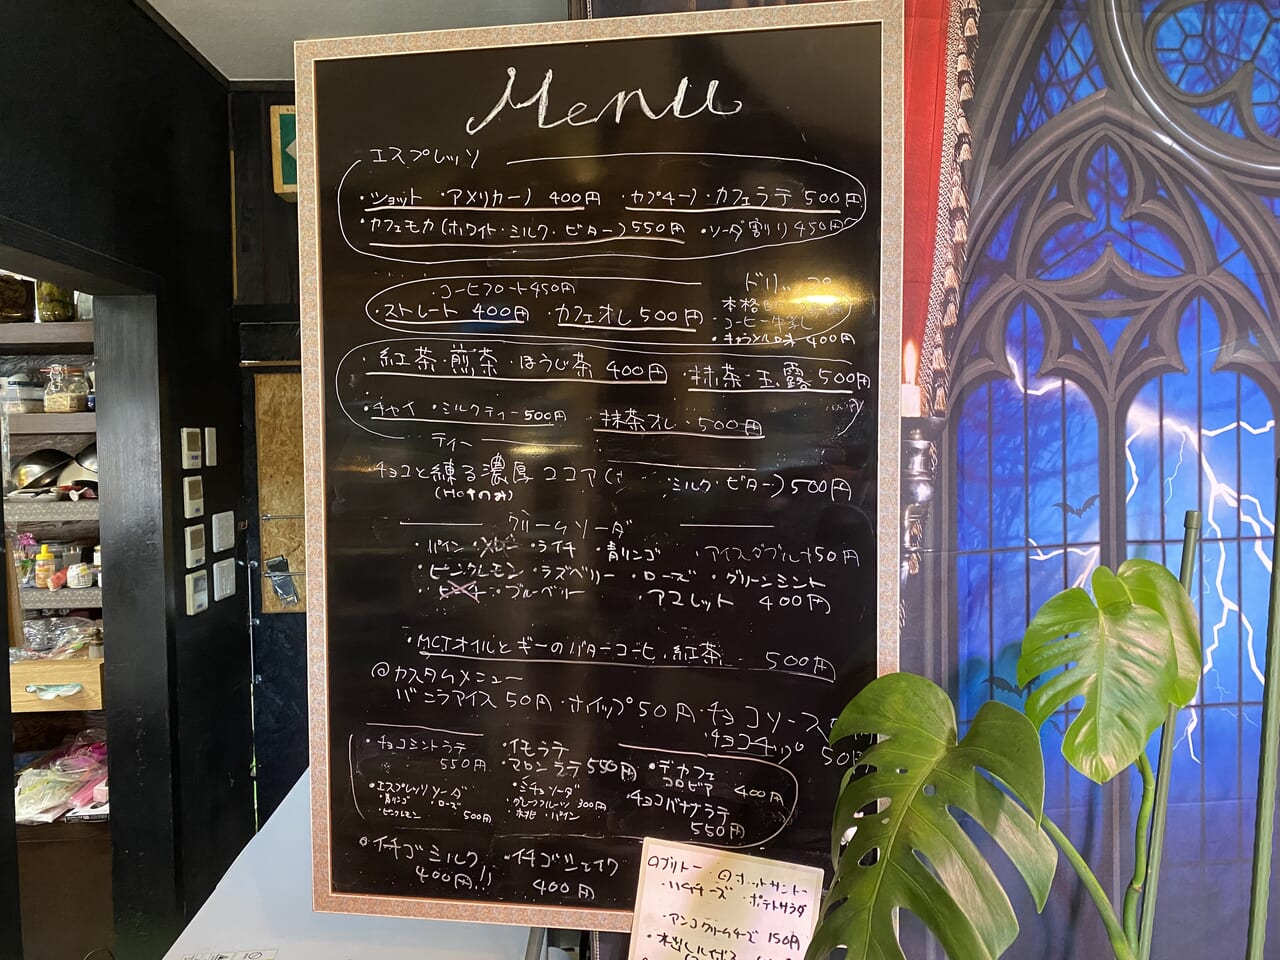 Menu
エスプレッソ
・ショット ・アメリカーノ 400円 ・カプチーノ・カフェラテ 500円
・カフェモカ(ホワイト・ミルク・ビター)550円 ・ソーダ割り)450円
ドリップ
・コーヒフロート450円
本格
・ストレート 400円 ・カフェオレ500円
・コーヒー牛乳
・キャラメル味 400円
・紅茶・煎茶・ほうじ茶 400円 ・抹茶・玉露・500円
・チャイ ・ミルクティー500円 ・抹茶オレ・500円
ティー
チョコと練る濃厚ココア( ミルク・ビター)500円
(HOTのみ)
クリームソーダ
・パイン ・ライチ ・青リンゴ ・アイスダブル+50円
・ピンクレモン ・ラズベリー ・ローズ ・グリーンミント
・ブルーベリー ・アセロット 400円
・MCTオイルとギーのバターコーヒ、紅茶 500円
@カスタムメニュー
バニラアイス50円・ホイップ50円・チョコソース
・チョコチップ 50円
・チョコミントラテ
550円
・イモラテ
・マロンラテ 550円
・デカフェ
コロビア 400円
・エスプレッソソーダ
・青リンゴ ・ローズ
・ピンクレモン 500円
・ミチョソーダ
・グレープフルーツ 300円
・木桃 ・パイン
・チョコバナナラテ
550円
・イチゴミルク
400円
・イチゴシェイク
400円
・ブリトー
・ホットサンド
・ハムチーズ ・ポテトサラダ
・アンコクリームチーズ 150円